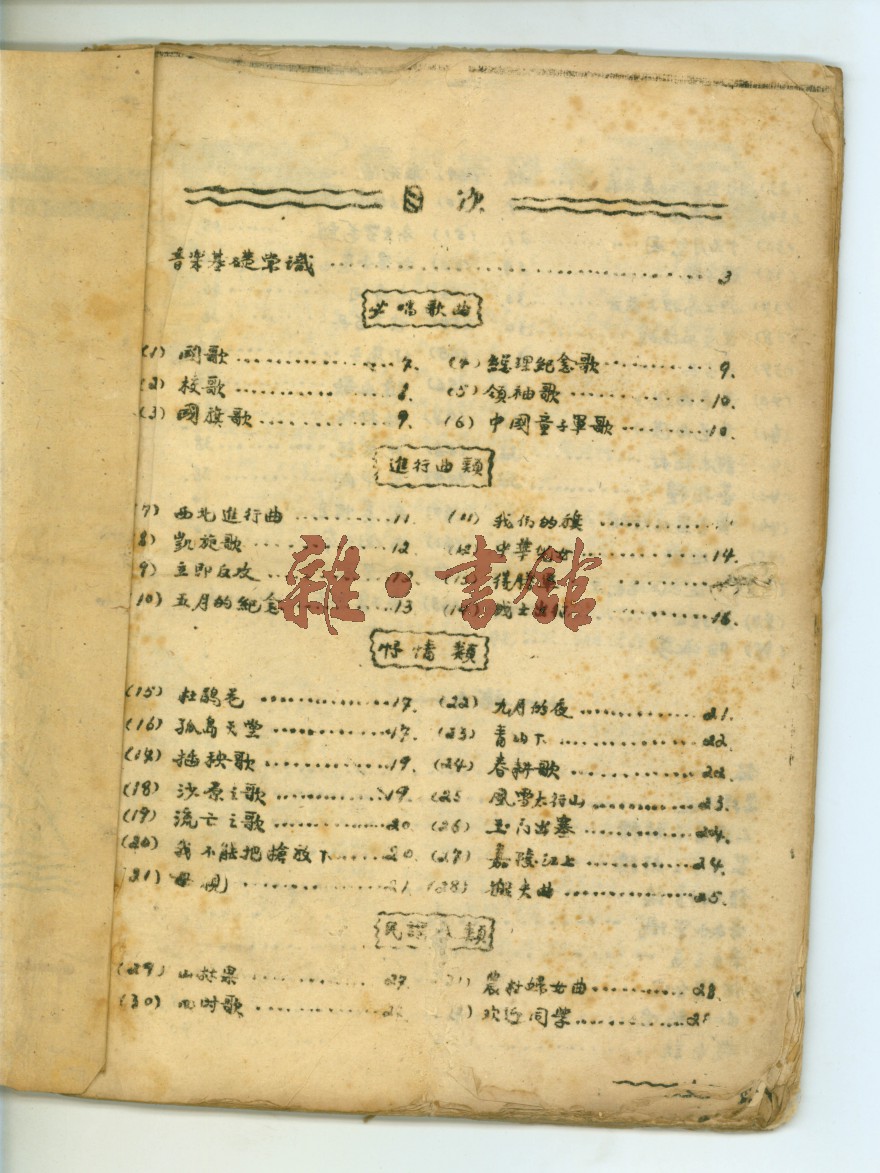 目次
音楽基礎常識 3
必唱歌曲
(1) 國歌 7. (4) 總理紀念歌 9.
(2) 校歌 8. (5) 領袖歌 10.
(3) 國旗歌 9. (6) 中國童子軍歌 10.
進行曲類
7) 西北進行曲 11. (11) 我们的旗
8) 凱旋歌 12. (12) 中華兒女 14.
9) 立即反攻 (13)
10) 五月的紀念 13. (14) 戰士出征 16.
雜·書館
抒情類
(15) 杜鵑花 17. (22) 九月的夜 21.
(16) 孤島天堂 17. (23) 青山下 22.
(17) 插秧歌 19. (24) 春耕歌 22.
(18) 沙原之歌 19. (25 風雪太行山 23.
(19) 流亡之歌 20. (26) 玉门出塞 24.
(20) 我不能把搶放下 20. (27) 嘉陵江上 24.
(21) 母親 21. (28) 縴夫曲 25.
民謠 類
(29) 山林果 27. 農村婦女曲 28.
(30) 四时歌 欢迎同學